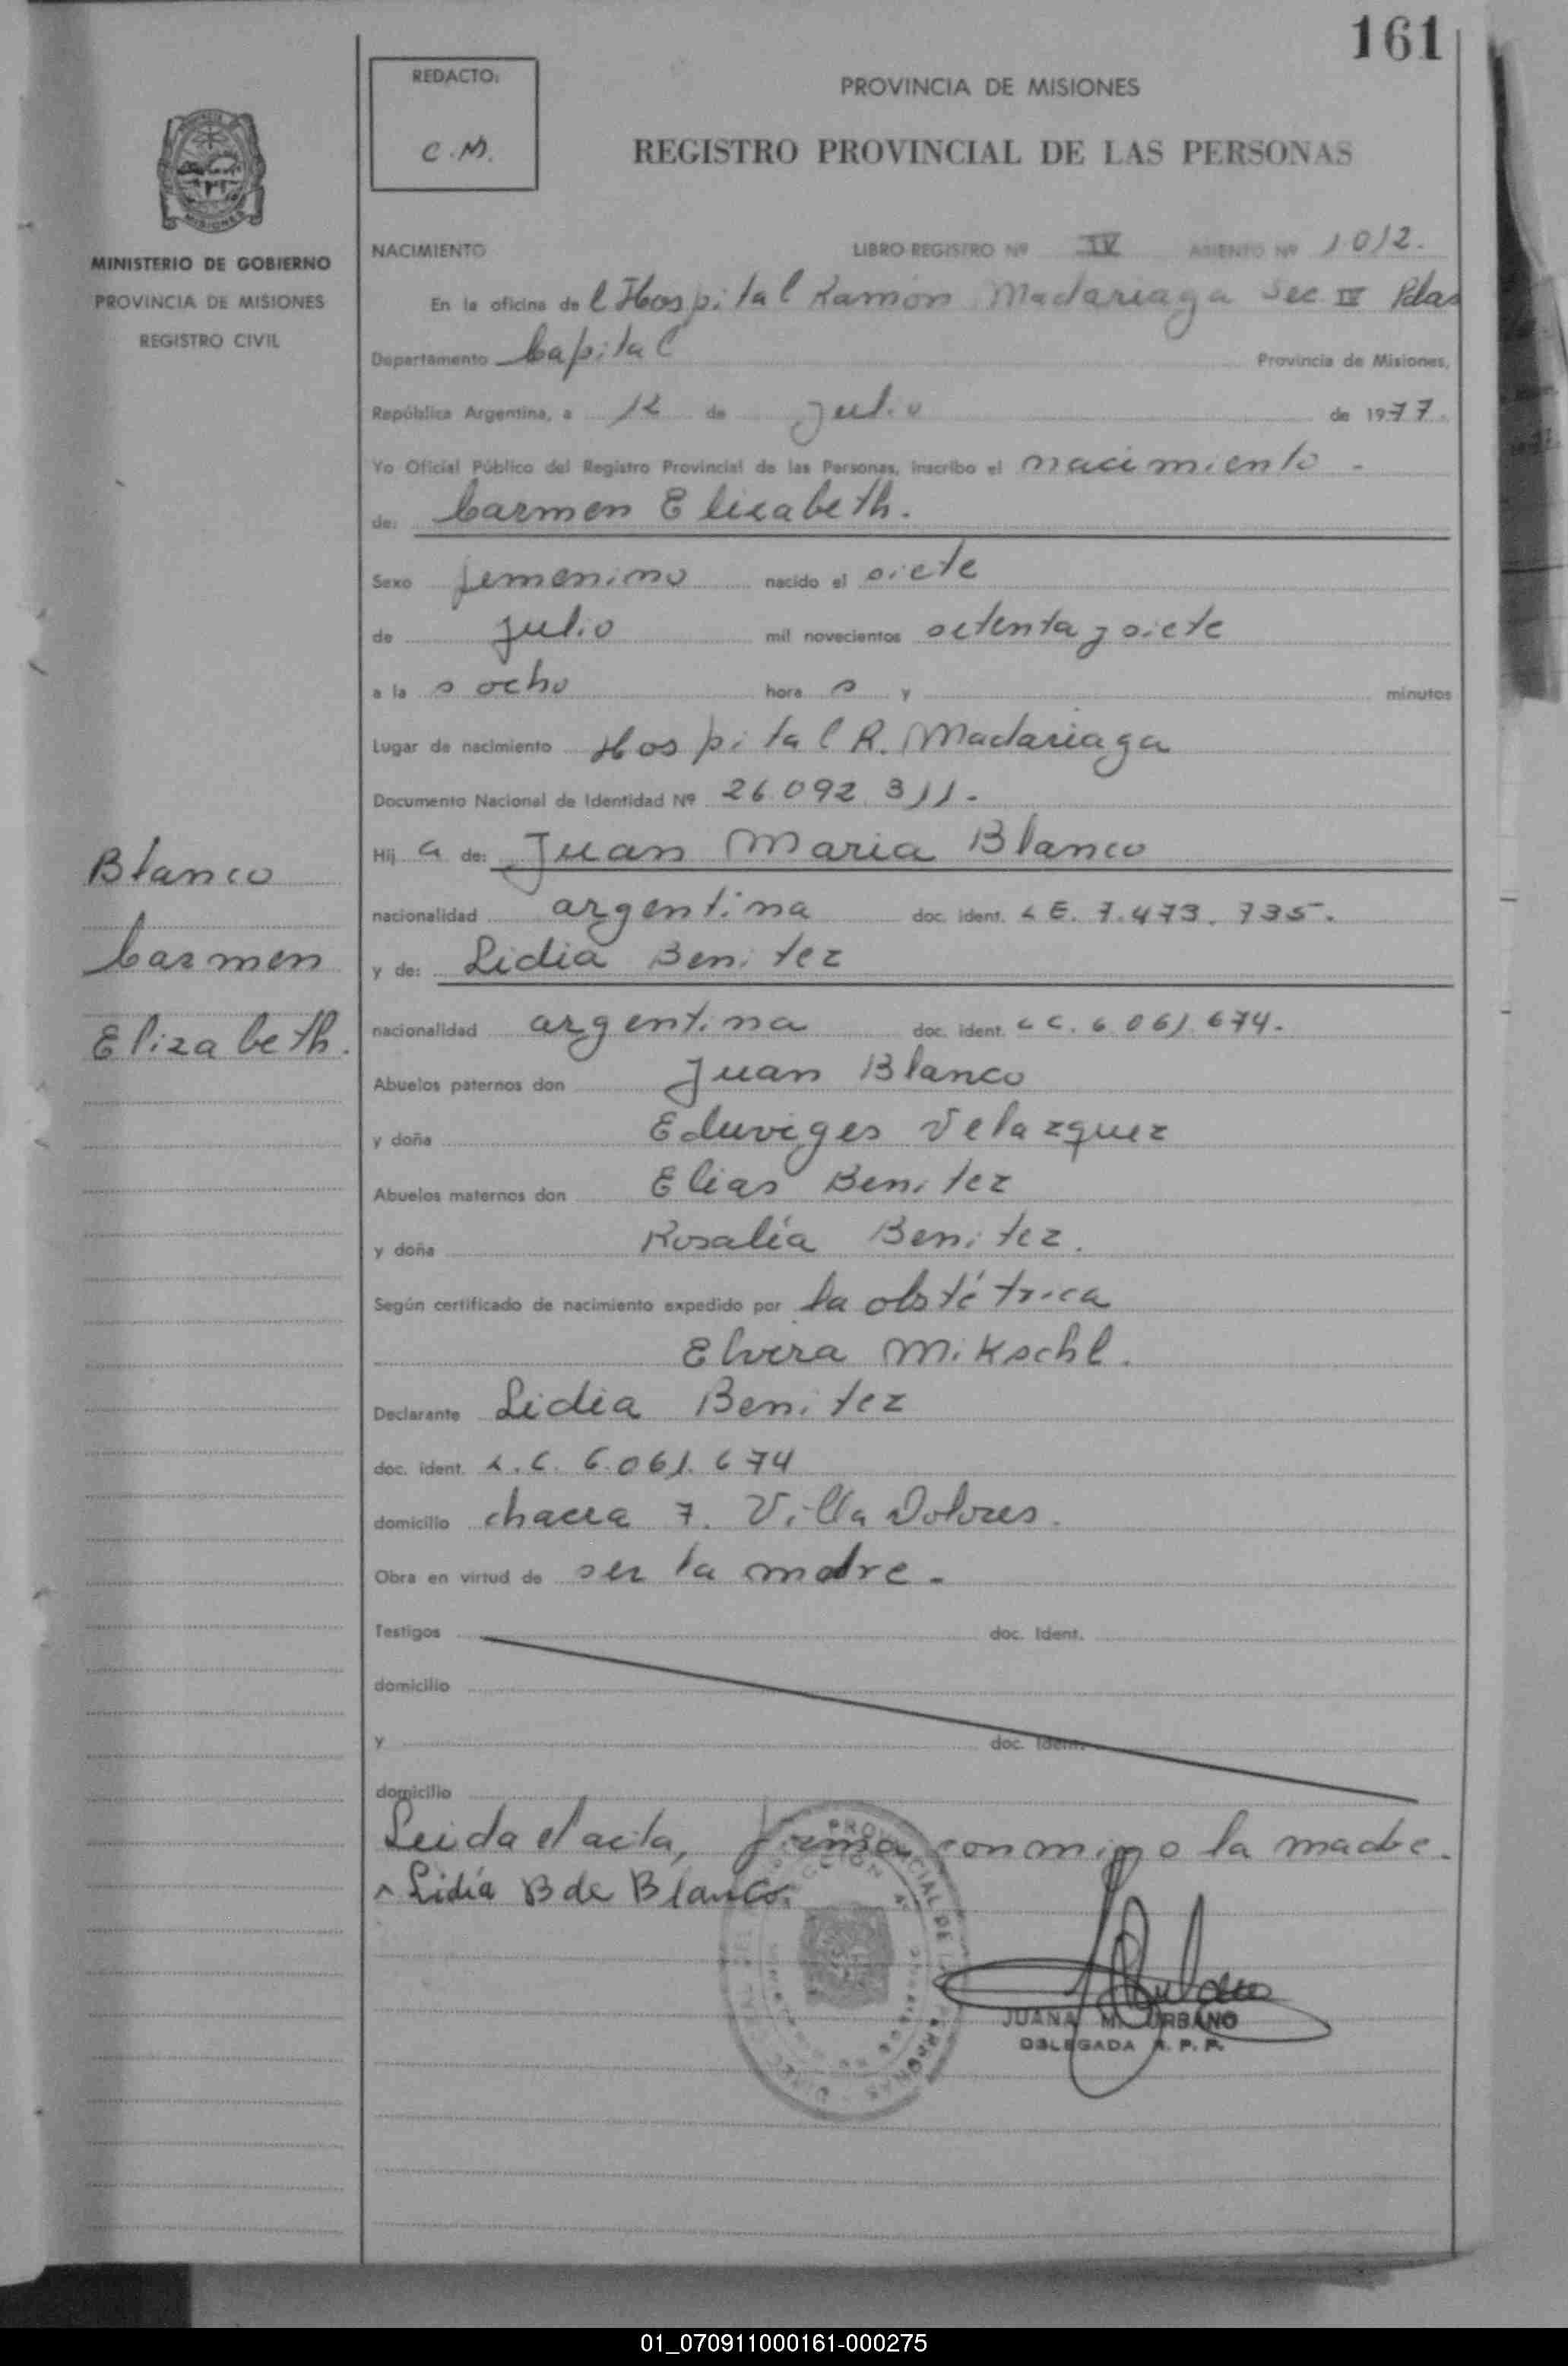 161
REDACTO:
C.M.
PROVINCIA DE MISIONES
REGISTRO PROVINCIAL DE LAS PERSONAS
MISIONES
MINISTERIO DE GOBIERNO
PROVINCIA DE MISIONES
REGISTRO CIVIL
NACIMIENTO LIBRO REGISTRO Nº IV ASIENTO Nº 1012.
En la oficina de l Hospital Ramón Madariaga Sec IV Pdas
Departamento Capital Provincia de Misiones,
República Argentina, a 12 de Julio de 1977.
Yo Oficial Público del Registro Provincial de las Personas, inscribo el nacimiento -
de: Carmen Elizabeth.
Sexo femenino nacido el siete
de Julio mil novecientos setenta y siete
a la s ocho hora s y minutos
Lugar de nacimiento Hospital R. Madariaga
Documento Nacional de Identidad Nº 26.092.311.-
Hij a de: Juan Maria Blanco
nacionalidad argentina doc. ident. L E. 7.473.735.
y de: Lidia Benitez
nacionalidad argentina doc. ident. L C. 6.061.674.-
Abuelos paternos don Juan Blanco
y doña Eduviges Velazquez
Abuelos maternos don Elias Benitez
y doña Rosalía Benitez.
Según certificado de nacimiento expedido por la obstétrica
Elvira Mikschl.
Declarante Lidia Benitez
doc. ident. L.C. 6.061.674
domicilio chacra 7. Villa Dolores.
Obra en virtud de ser la madre.-
Testigos doc. Ident.
domicilio
y doc. Ident.
domicilio
Leida el acta, firma conmigo la madre.
Lidia B de Blanco.
JUANA M. URBANO
DELEGADA R. P. P.
Blanco
Carmen
Elizabeth.
01_070911000161-000275